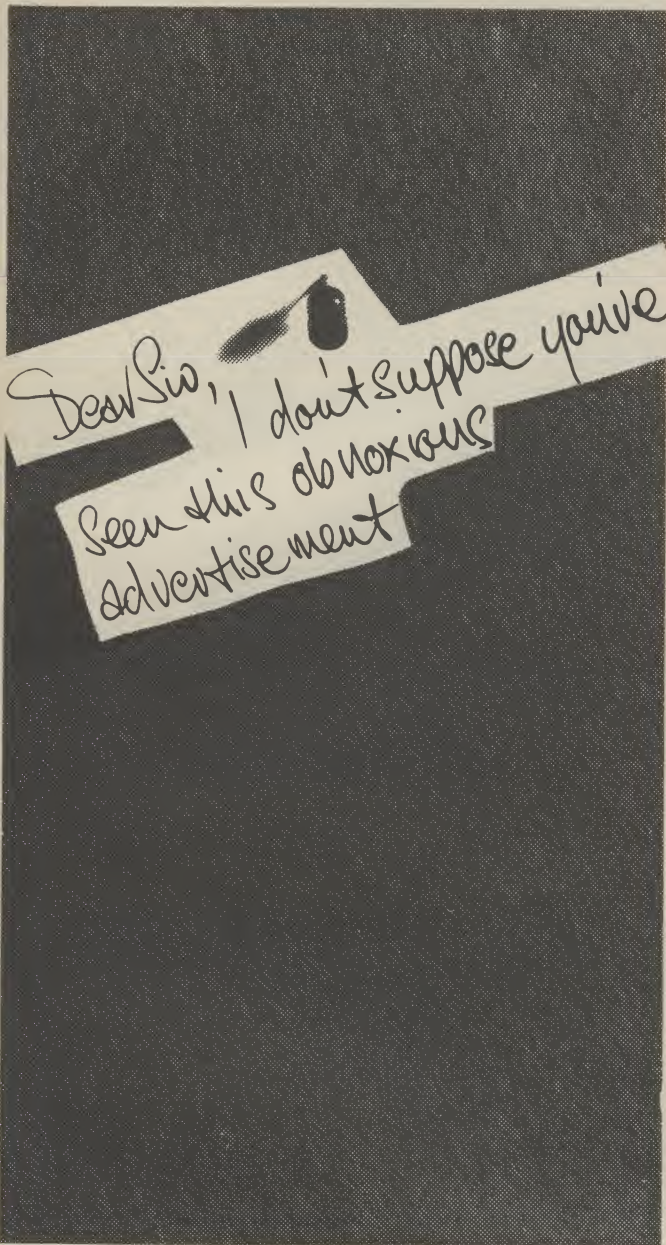 Dear Sir,
I don't suppose you've
seen this obnoxious
advertisement